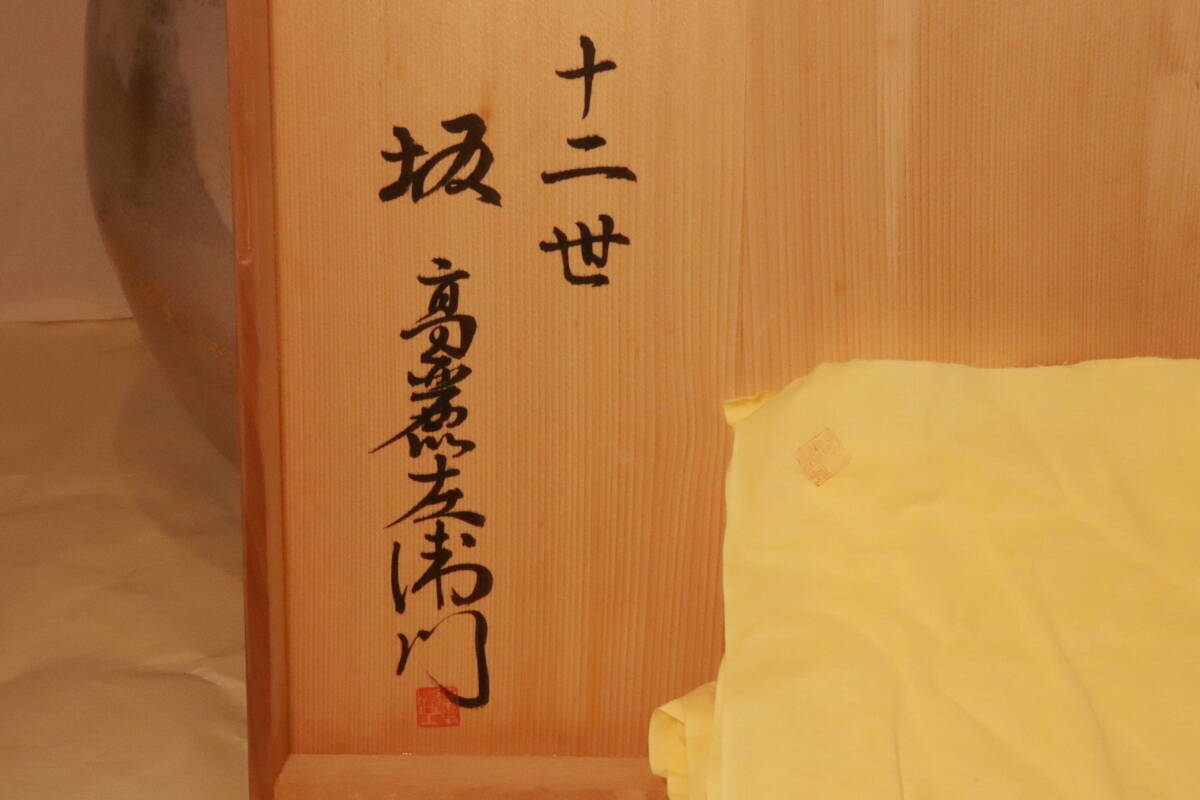 十二世
坂 高麗左衛門